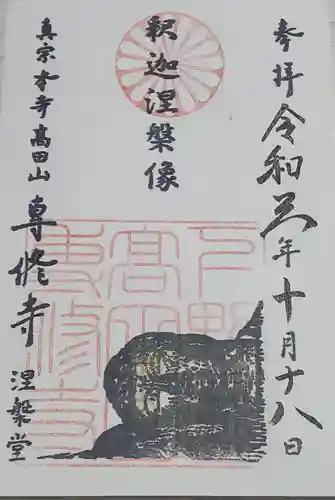 奉拝 令和三年十月十八日
釈迦涅槃像
真宗本寺高田山 専修寺 涅槃堂
下野
高田
専修寺